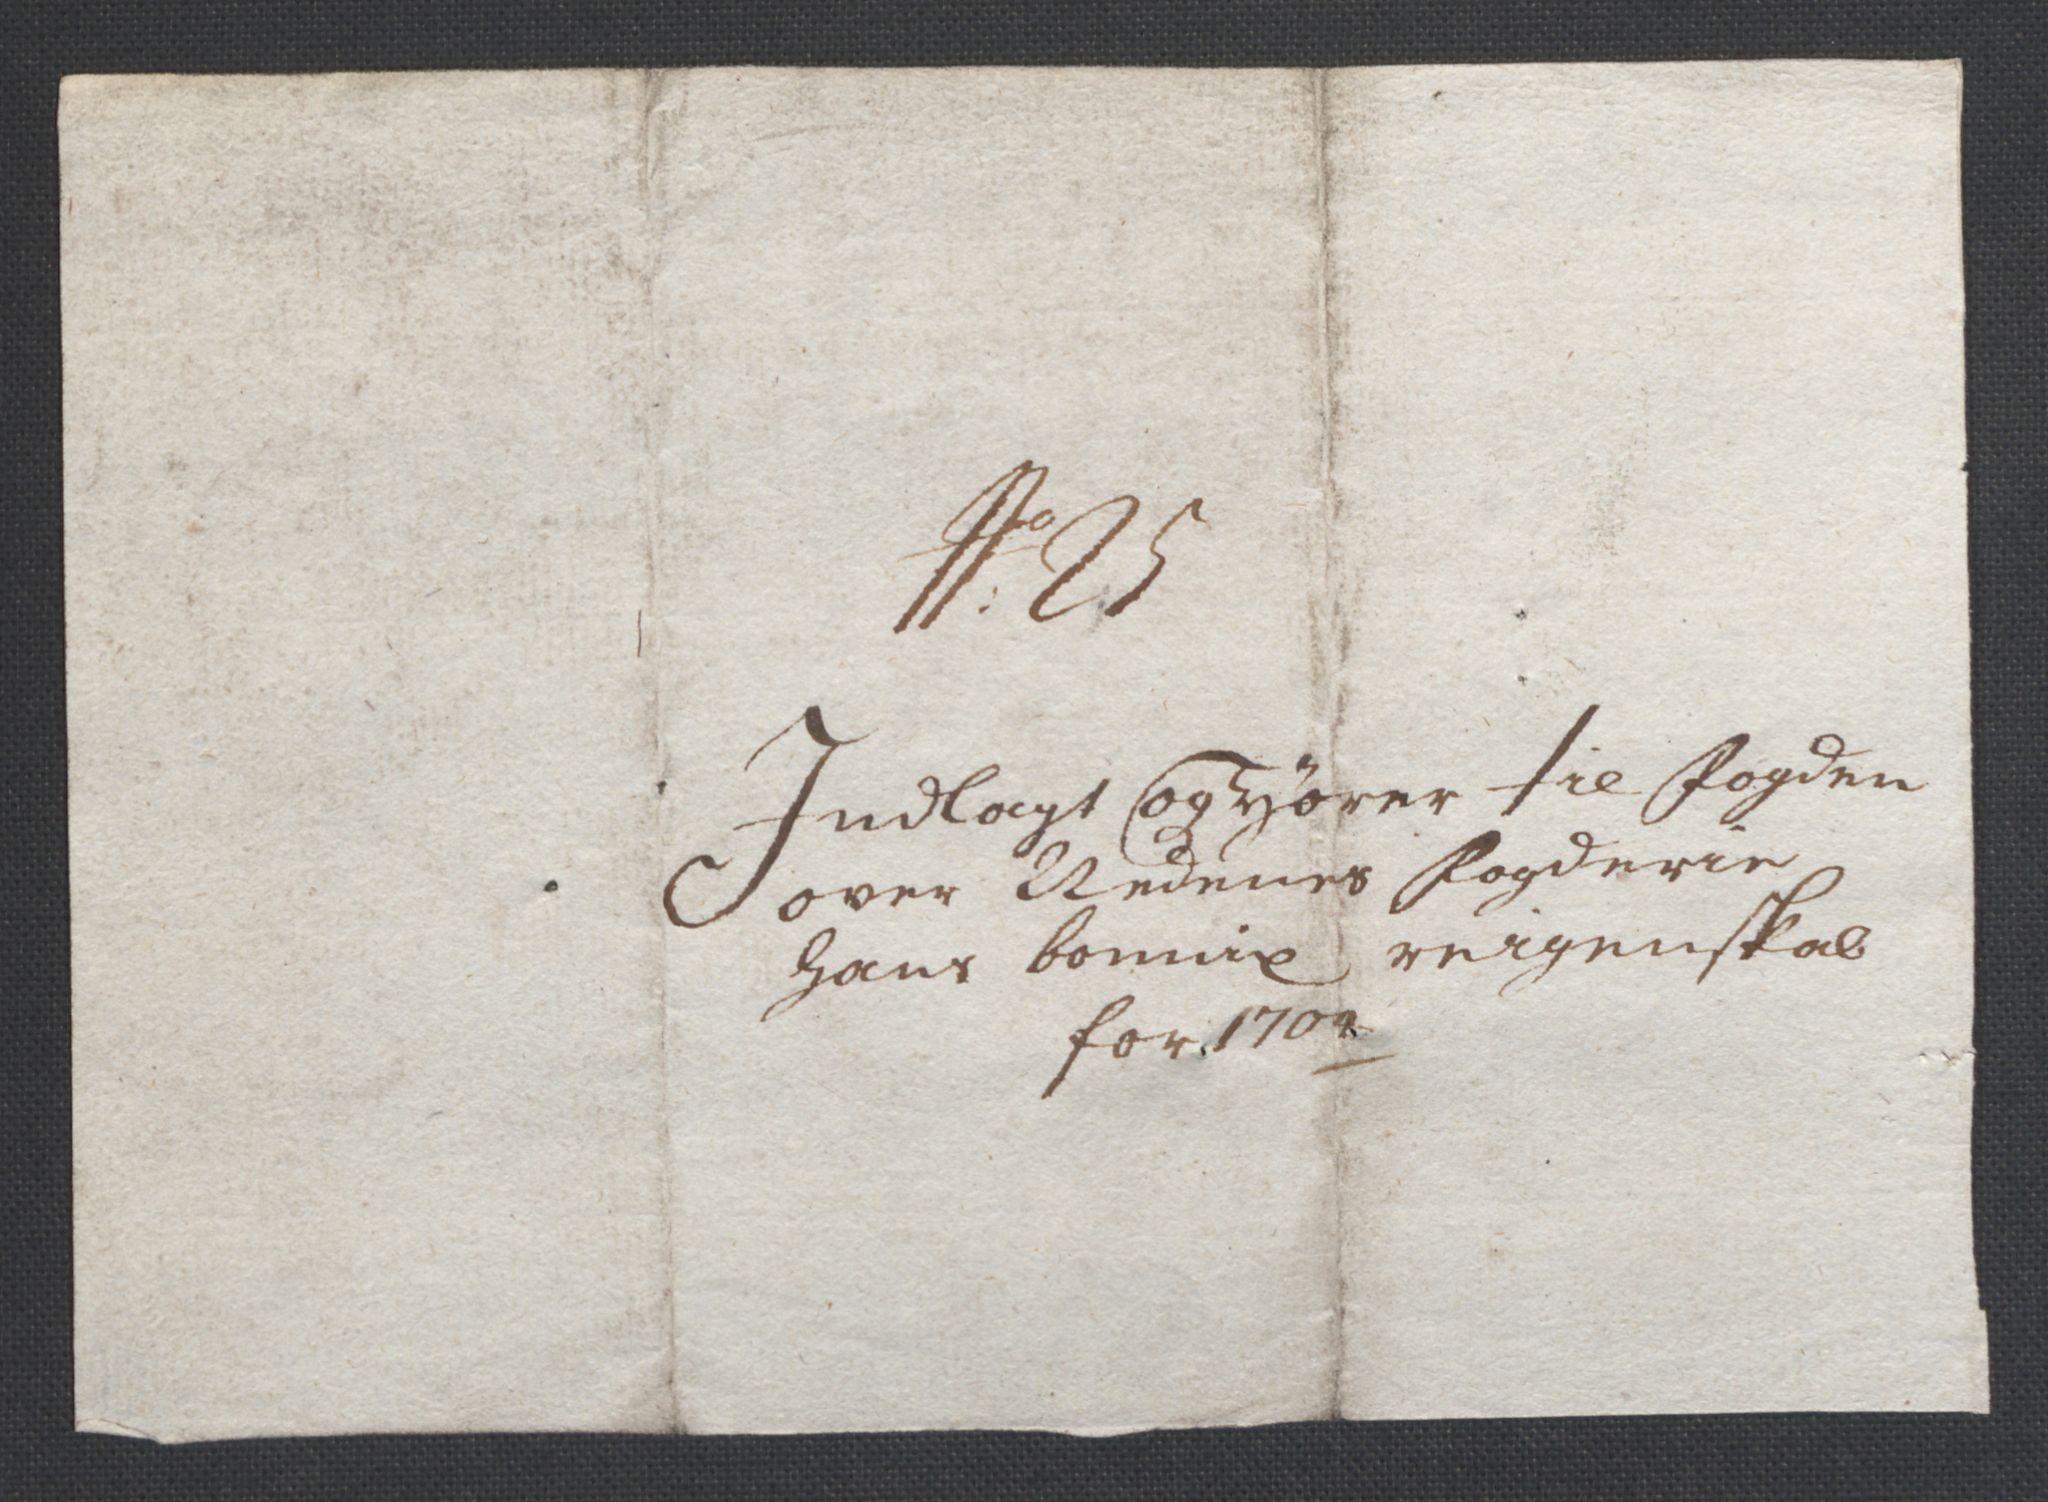 No: 25
Indlagt og Hörer til Fogden
over Nedenes Fogderie
Hans bomix reigenskab
for 1702